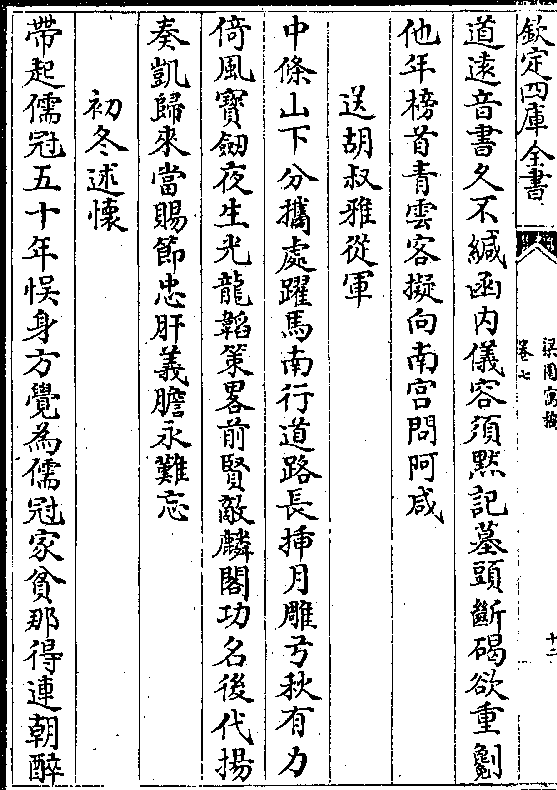 欽定四庫全書
梁園寓稿
卷七
十二
道逺音書久不緘函内儀容須黙記墓頭斷碣欲重劖
他年榜首青雲客擬向南宫問阿咸
送胡叔雅從軍
中條山下分攜處躍馬南行道路長挿月雕弓秋有力
倚風寳劒夜生光龍韜策畧前賢敵麟閣功名後代揚
奏凱歸來當賜節忠肝義膽永難忘
初冬述懷
帶起儒冠五十年悞身方覺為儒冠家貧那得連朝醉